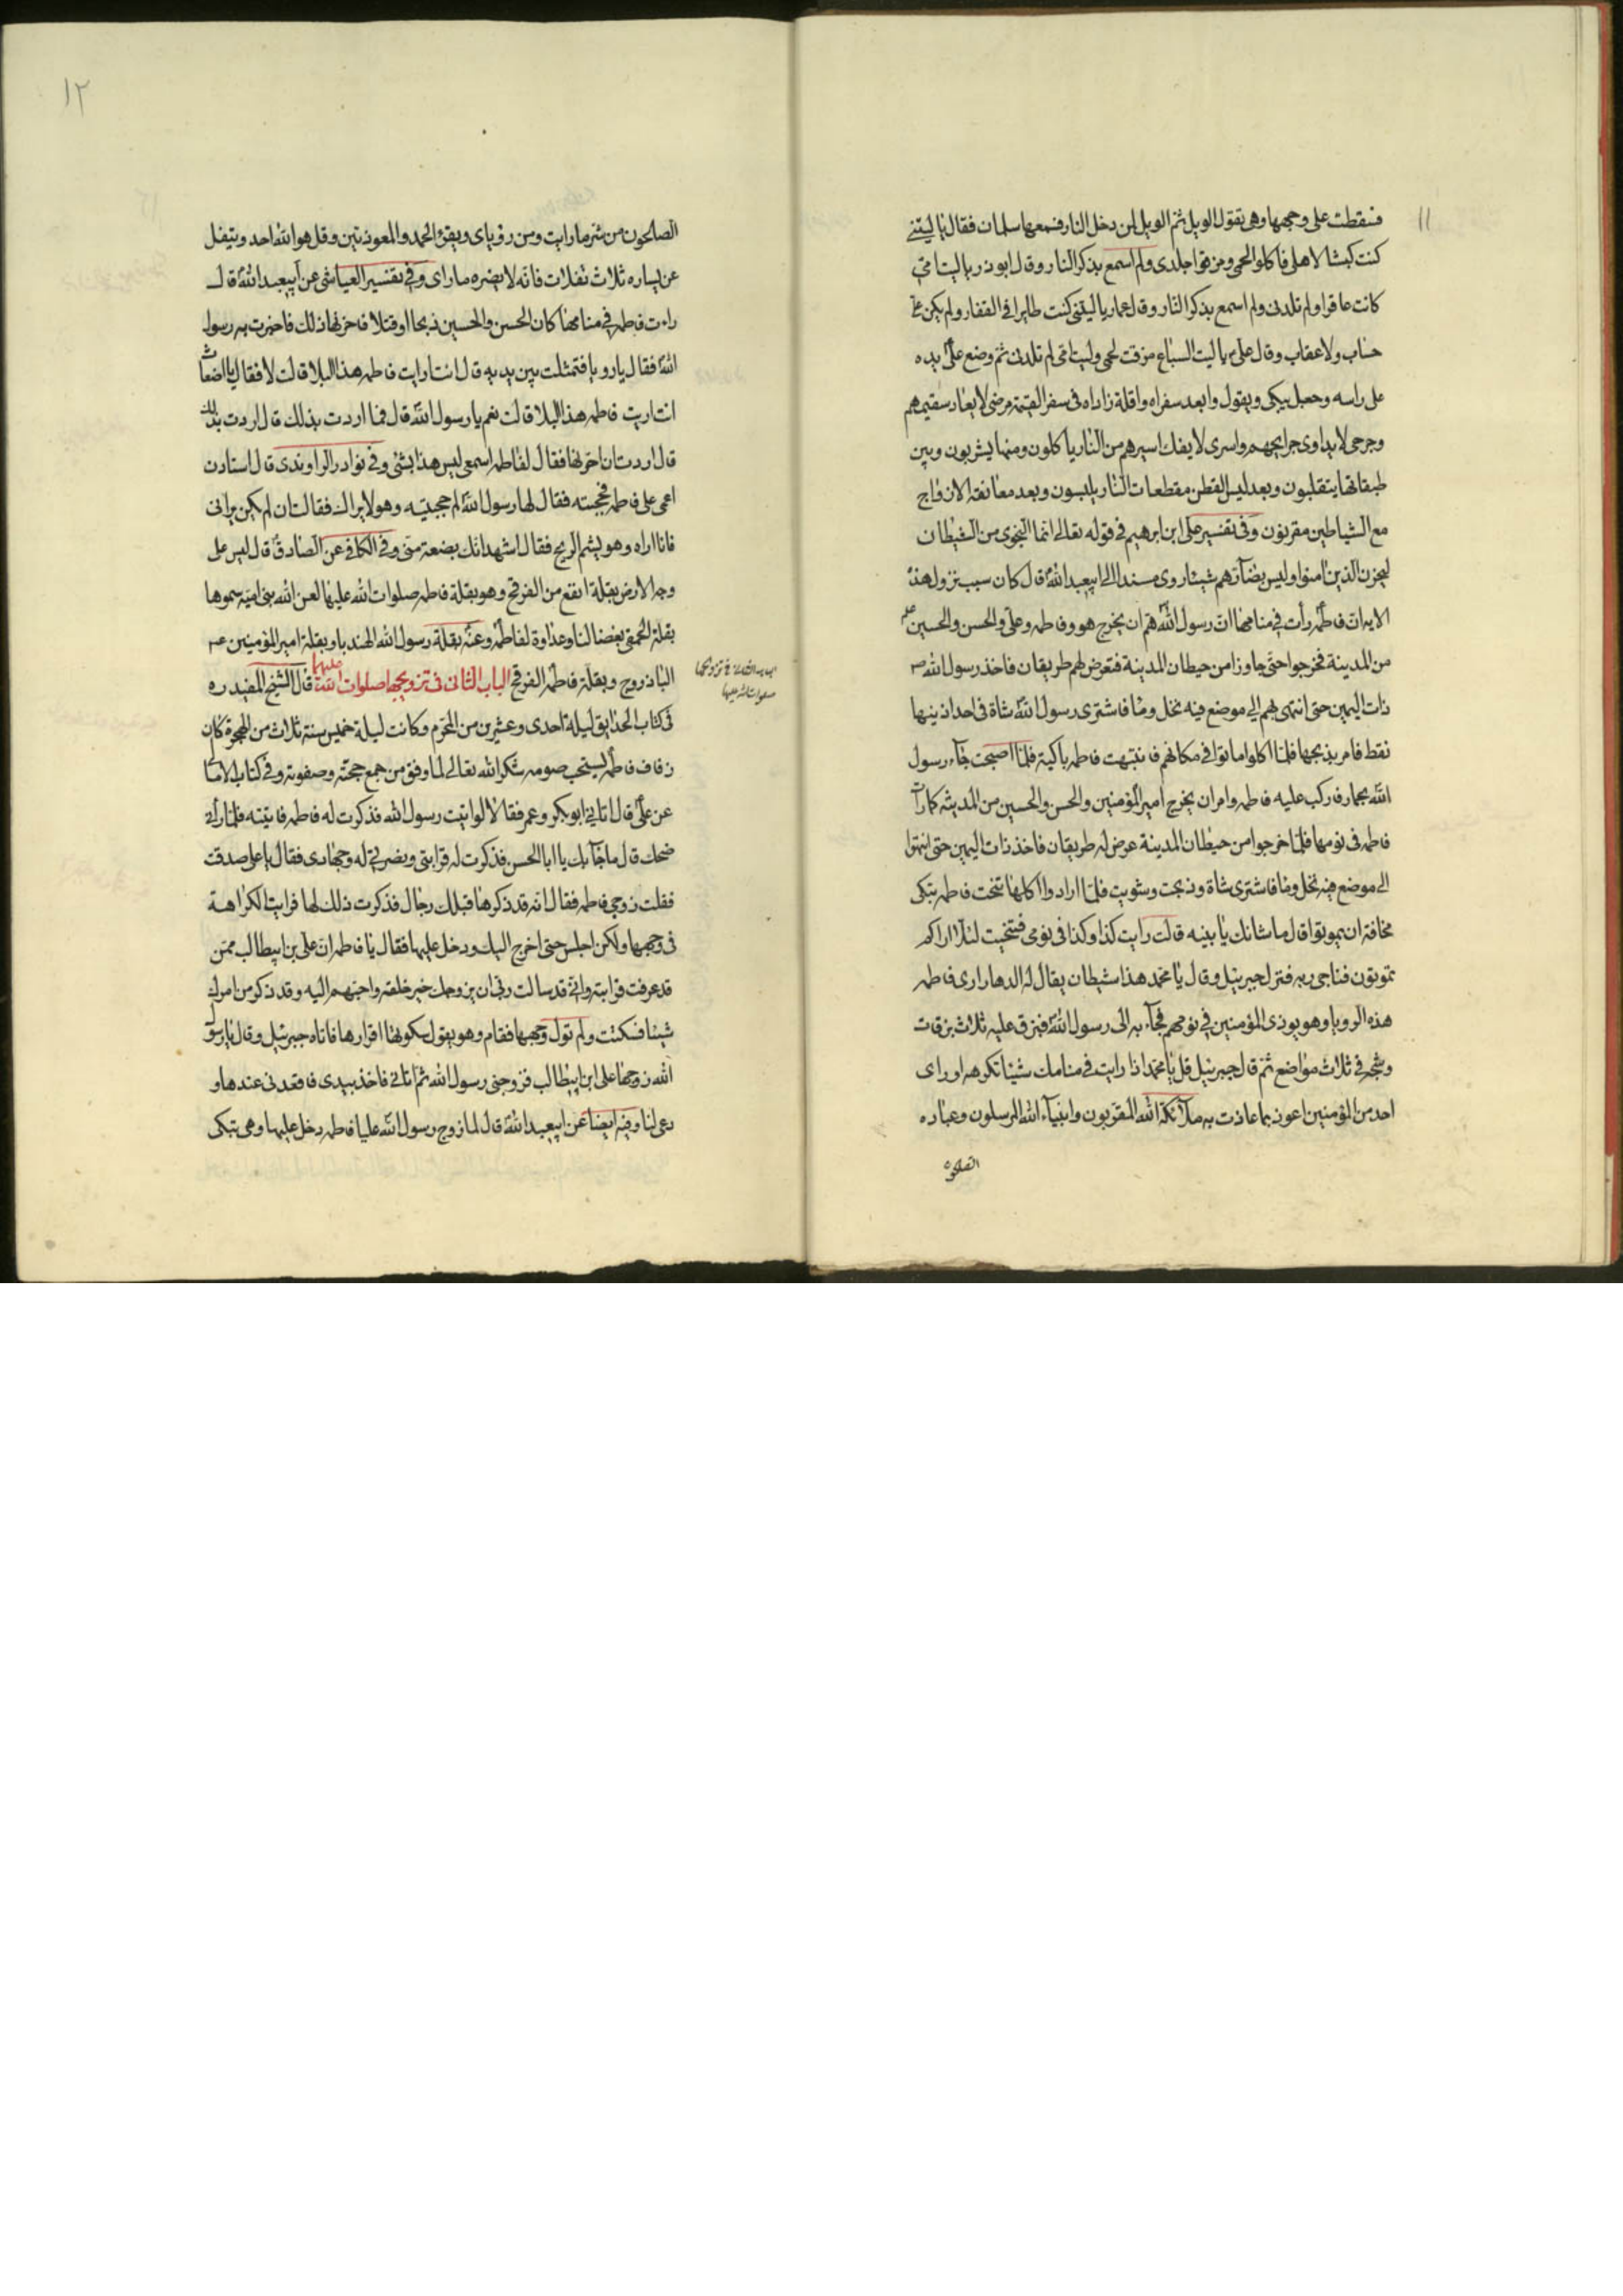 ١١
فسقطت على وجهها وهى تقول الويل ثم الويل لمن دخل النار فسمعها سلمان فقال يا ليتنى
كنت كبشا لاهلى فاكلوا لحمى ومزقوا جلدى ولم اسمع بذكر النار وقال ابوذر يا ليت امى
كانت عاقرا ولم تلدنى ولم اسمع بذكر النار وقال عمار يا ليتنى كنت طايرا فى القفار ولم يكن على
حساب ولا عقاب وقال على ع يا ليت السباع مزقت لحمى وليت امى لم تلدنى ثم وضع على يده
على راسه وجعل يبكى ويقول وابعد سفراه واقلة زاداه فى سفر القيمة مرضى لا يعاد سقيمهم
وجرحى لا يداوى جرايحهم واسرى لا يفك اسيرهم من النار ياكلون ومنها يشربون وبين
طبقاتها يتقلبون وبعد لبس القطن مقطعات النار يلبسون وبعد معانقة الازواج
مع الشياطين مقرنون وفى تفسير على ابن ابرهيم فى قوله تعالى انما النجوى من الشيطان
ليحزن الذين امنوا وليس بضارهم شيئا روى مسندا الى ابيعبد الله قال كان سبب نزول هذه
الاية ان فاطمة رأت فى منامها ان رسول الله هم ان يخرج هو وفاطمه وعلى والحسن والحسين ع
من المدينة فخرجوا حتى جاوزا من حيطان المدينة فتعرض لهم طريقان فاخذ رسول الله ص
ذات اليمين حتى انتهى بهم الى موضع فيه نخل وماء فاشترى رسول الله شاة فى احد اذنيها
نقط فامر بذبحها فلما اكلوا ماتوا فى مكانهم فانتبهت فاطمه باكية فلما اصبحت جاء رسول
الله بحمار فركب عليه فاطمه وامر ان يخرج امير المؤمنين والحسن والحسين من المدينه كما رات
فاطمه فى نومها فلما خرجوا من حيطان المدينة عرض له طريقان فاخذ ذات اليمين حتى انتهوا
الى موضع فيه نخل وماء فاشترى شاة وذبحت وشويت فلما ارادوا اكلها تنحت فاطمه تبكى
مخافة ان يموتوا قال ما شانك يا بنيه قالت رايت كذا وكذا فى نومى فتنحيت لئلا اراكم
تموتون فناجى ربه فنزل جبرئيل وقال يا محمد هذا شيطان يقال له الدهار ارى فاطمه
هذه الرويا وهو يوذى المؤمنين فى نومهم فجاء به الى رسول الله فبزق عليه ثلاث بزقات
وشجه فى ثلاث مواضع ثم قال جبرئيل قل يا محمد اذا رايت فى منامك شيئا تكرهه او راى
احد من المؤمنين اعوذ بما عاذت به ملائكة الله المقربون وانبياء الله المرسلون وعباده
١٢
الصالحون من شر ما رايت ومن رؤياى ويقرء الحمد والمعوذتين وقل هو الله احد ويتفل
عن يساره ثلاث تفلات فانه لا يضره ما راى وفى تفسير العياشى عن ابيعبد الله قال
راءت فاطمه فى منامها كان الحسن والحسين ذبحا او قتلا فاحزنها ذلك فاخبرت به رسول
الله فقال يا رويا فتمثلت بين يديه قال انت اريت فاطمه هذا البلا قالت لا فقال يا اضغاث
انت اريت فاطمه هذا البلا قالت نعم يا رسول الله قال فما اردت بذلك قال اردت بذلك
قال اردت ان احزنها فقال لفاطمه اسمعى ليس هذا بشئ وفى نوادر الراوندى قال استاذن
اعمى على فاطمه فحجبته فقال لها رسول الله لم حجبتيه وهو لا يراك فقالت ان لم يكن يرانى
فانا اراه وهو يشم الريح فقال اشهد انك بضعة منى وفى الكافى عن الصادق قال ليس على
وجه الارض بقلة انفع من الفرفخ وهو بقلة فاطمه صلوات الله عليها لعن الله بنى اميه سموها
بقلة الحمقى بغضا لنا وعداوة لفاطمة وعنه بقلة رسول الله الهندبا وبقلة امير المؤمنين ع
الباذروج وبقلة فاطمه الفرفخ الباب الثانى فى تزويجها صلوات الله عليهما قال الشيخ المفيد ره
فى كتاب الحدايق ليلة احدى وعشرين من المحرم وكانت ليلة خميس سنة ثلاث من الهجرة كان
زفاف فاطمة يستحب صومه شكرا لله تعالى لما وفق من جمع حجته وصفوته وفى كتاب الامالى
عن على قال اتانى ابوبكر وعمر فقالا لو اتيت رسول الله فذكرت له فاطمه فاتيته فلما رأنى
ضحك قال ما جاء بك يا ابا الحسن فذكرت له قرابتى ونصرتى له وجهادى فقال يا على صدقت
فقلت زوجى فاطمه فقال انه قد ذكرها قبلك رجال فذكرت ذلك لها فرايت الكراهة
فى وجهها ولكن اجلس حتى اخرج اليك ودخل عليها فقال يا فاطمه ان على بن ابيطالب ممن
قد عرفت قرابته وانى قد سالت ربى ان يزوجك خير خلقه واحبهم اليه وقد ذكر من امرك
شيئا فسكتت ولم تول وجهها فقام وهو يقول سكوتها اقرارها فاتاه جبرئيل وقال يا رسول
الله زوجها على ابن ابيطالب فزوجنى رسول الله ثم اتانى فاخذ بيدى فاقعدنى عندها و
دعى لنا وفيه ايضا عن ابيعبد الله قال لما زوج رسول الله عليا فاطمه دخل عليها وهى تبكى